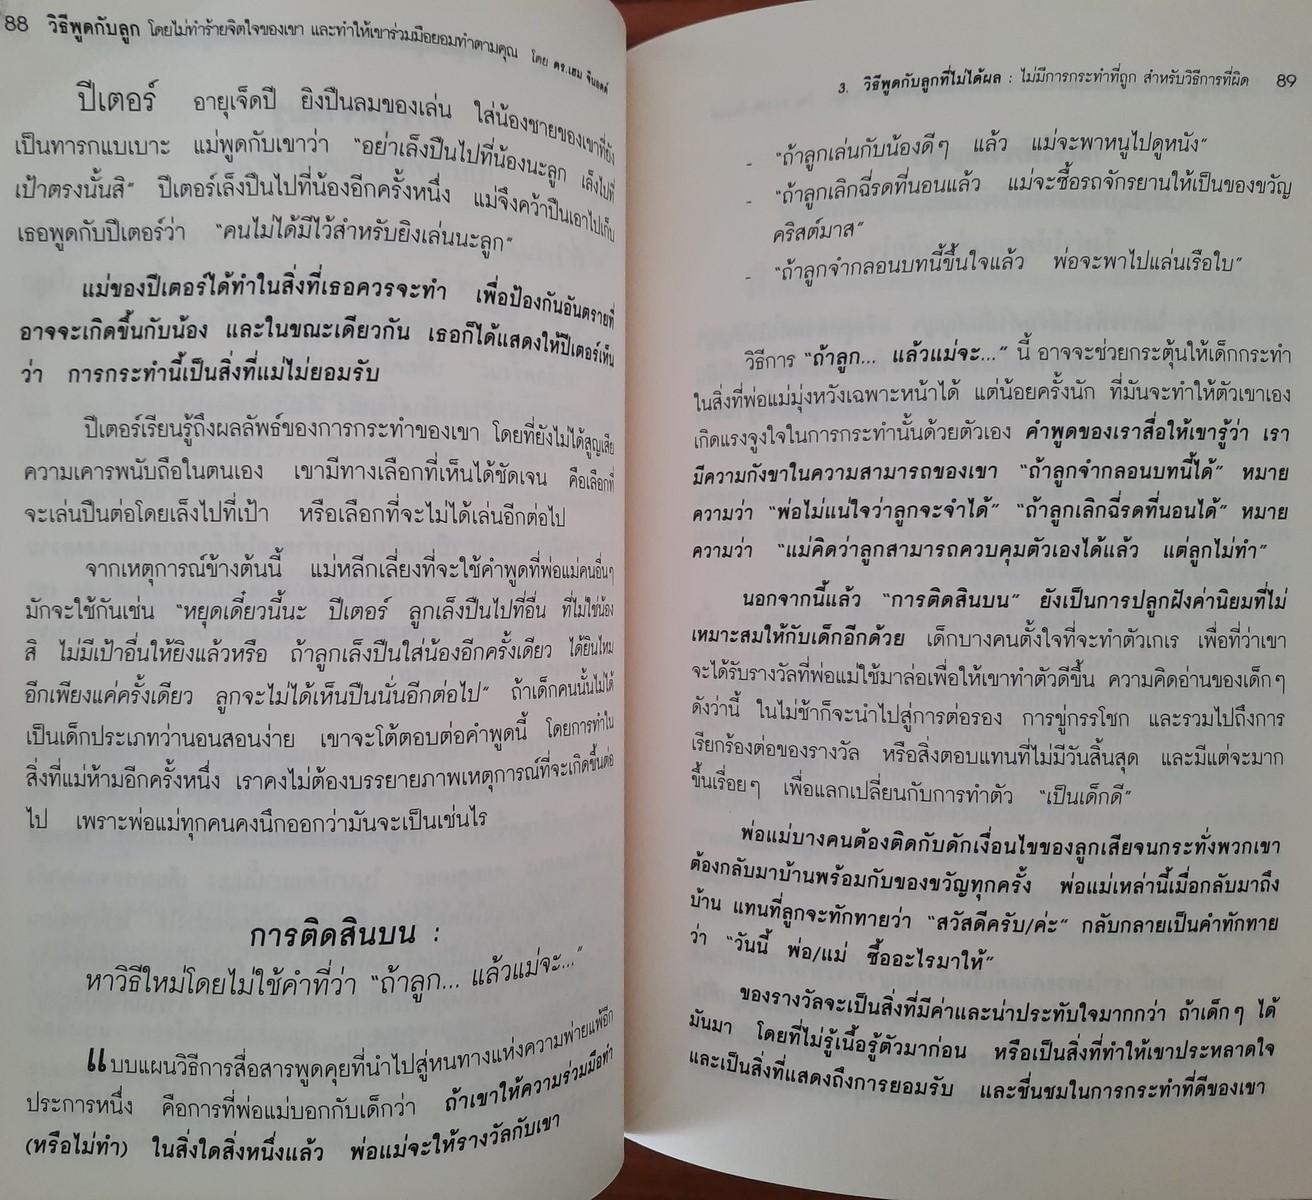 88 วิธีพูดกับลูก โดยไม่ทำร้ายจิตใจของเขา และทำให้เขาร่วมมือยอมทำตามคุณ โดย ดร.เฮม จีนอตต์
ปีเตอร์ อายุเจ็ดปี ยิงปืนลมของเล่น ใส่น้องชายของเขาที่ยัง
เป็นทารกแบเบาะ แม่พูดกับเขาว่า “อย่าเล็งปืนไปที่น้องนะลูก เล็งไปที่
เป้าตรงนั้นสิ” ปีเตอร์เล็งปืนไปที่น้องอีกครั้งหนึ่ง แม่จึงคว้าปืนเอาไปเก็บ
เธอพูดกับปีเตอร์ว่า “คนไม่ได้มีไว้สำหรับยิงเล่นนะลูก”
แม่ของปีเตอร์ได้ทำในสิ่งที่เธอควรจะทำ เพื่อป้องกันอันตรายที่
อาจจะเกิดขึ้นกับน้อง และในขณะเดียวกัน เธอก็ได้แสดงให้ปีเตอร์เห็น
ว่า การกระทำนี้เป็นสิ่งที่แม่ไม่ยอมรับ
ปีเตอร์เรียนรู้ถึงผลลัพธ์ของการกระทำของเขา โดยที่ยังไม่ได้สูญเสีย
ความเคารพนับถือในตนเอง เขามีทางเลือกที่เห็นได้ชัดเจน คือเลือกที่
จะเล่นปืนต่อโดยเล็งไปที่เป้า หรือเลือกที่จะไม่ได้เล่นอีกต่อไป
จากเหตุการณ์ข้างต้นนี้ แม่หลีกเลี่ยงที่จะใช้คำพูดที่พ่อแม่คนอื่นๆ
มักจะใช้กันเช่น “หยุดเดี๋ยวนี้นะ ปีเตอร์ ลูกเล็งปืนไปที่อื่น ที่ไม่ใช่น้อง
สิ ไม่มีเป้าอื่นให้ยิงแล้วหรือ ถ้าลูกเล็งปืนใส่น้องอีกครั้งเดียว ได้ยินไหม
อีกเพียงแค่ครั้งเดียว ลูกจะไม่ได้เห็นปืนนั่นอีกต่อไป” ถ้าเด็กคนนั้นไม่ได้
เป็นเด็กประเภทว่านอนสอนง่าย เขาจะโต้ตอบต่อคำพูดนี้ โดยการทำใน
สิ่งที่แม่ห้ามอีกครั้งหนึ่ง เราคงไม่ต้องบรรยายภาพเหตุการณ์ที่จะเกิดขึ้นต่อ
ไป เพราะพ่อแม่ทุกคนคงนึกออกว่ามันจะเป็นเช่นไร
การติดสินบน :
หาวิธีใหม่โดยไม่ใช้คำที่ว่า “ถ้าลูก... แล้วแม่จะ...”
แบบแผนวิธีการสื่อสารพูดคุยที่นำไปสู่หนทางแห่งความพ่ายแพ้อีก
ประการหนึ่ง คือการที่พ่อแม่บอกกับเด็กว่า ถ้าเขาให้ความร่วมมือทำ
(หรือไม่ทำ) ในสิ่งใดสิ่งหนึ่งแล้ว พ่อแม่จะให้รางวัลกับเขา
3. วิธีพูดกับลูกที่ไม่ได้ผล : ไม่มีการกระทำที่ถูก สำหรับวิธีการที่ผิด 89
- “ถ้าลูกเล่นกับน้องดีๆ แล้ว แม่จะพาหนูไปดูหนัง”
- “ถ้าลูกเลิกฉี่รดที่นอนแล้ว แม่จะซื้อรถจักรยานให้เป็นของขวัญ
คริสต์มาส”
- “ถ้าลูกจำกลอนบทนี้ขึ้นใจแล้ว พ่อจะพาไปแล่นเรือใบ”
วิธีการ “ถ้าลูก... แล้วแม่จะ...” นี้ อาจจะช่วยกระตุ้นให้เด็กกระทำ
ในสิ่งที่พ่อแม่มุ่งหวังเฉพาะหน้าได้ แต่น้อยครั้งนัก ที่มันจะทำให้ตัวเขาเอง
เกิดแรงจูงใจในการกระทำนั้นด้วยตัวเอง คำพูดของเราสื่อให้เขารู้ว่า เรา
มีความกังขาในความสามารถของเขา “ถ้าลูกจำกลอนบทนี้ได้” หมาย
ความว่า “พ่อไม่แน่ใจว่าลูกจะจำได้” “ถ้าลูกเลิกฉี่รดที่นอนได้” หมาย
ความว่า “แม่คิดว่าลูกสามารถควบคุมตัวเองได้แล้ว แต่ลูกไม่ทำ”
นอกจากนี้แล้ว “การติดสินบน” ยังเป็นการปลูกฝังค่านิยมที่ไม่
เหมาะสมให้กับเด็กอีกด้วย เด็กบางคนตั้งใจที่จะทำตัวเกเร เพื่อที่ว่าเขา
จะได้รับรางวัลที่พ่อแม่ใช้มาล่อเพื่อให้เขาทำตัวดีขึ้น ความคิดอ่านของเด็กๆ
ดังว่านี้ ในไม่ช้าก็จะนำไปสู่การต่อรอง การขู่กรรโชก และรวมไปถึงการ
เรียกร้องต่อของรางวัล หรือสิ่งตอบแทนที่ไม่มีวันสิ้นสุด และมีแต่จะมาก
ขึ้นเรื่อยๆ เพื่อแลกเปลี่ยนกับการทำตัว “เป็นเด็กดี”
พ่อแม่บางคนต้องติดกับดักเงื่อนไขของลูกเสียจนกระทั่งพวกเขา
ต้องกลับมาบ้านพร้อมกับของขวัญทุกครั้ง พ่อแม่เหล่านี้เมื่อกลับมาถึง
บ้าน แทนที่ลูกจะทักทายว่า “สวัสดีครับ/ค่ะ” กลับกลายเป็นคำทักทาย
ว่า “วันนี้ พ่อ/แม่ ซื้ออะไรมาให้”
ของรางวัลจะเป็นสิ่งที่มีค่าและน่าประทับใจมากกว่า ถ้าเด็กๆ ได้
มันมา โดยที่ไม่รู้เนื้อรู้ตัวมาก่อน หรือเป็นสิ่งที่ทำให้เขาประหลาดใจ
และเป็นสิ่งที่แสดงถึงการยอมรับ และชื่นชมในการกระทำที่ดีของเขา